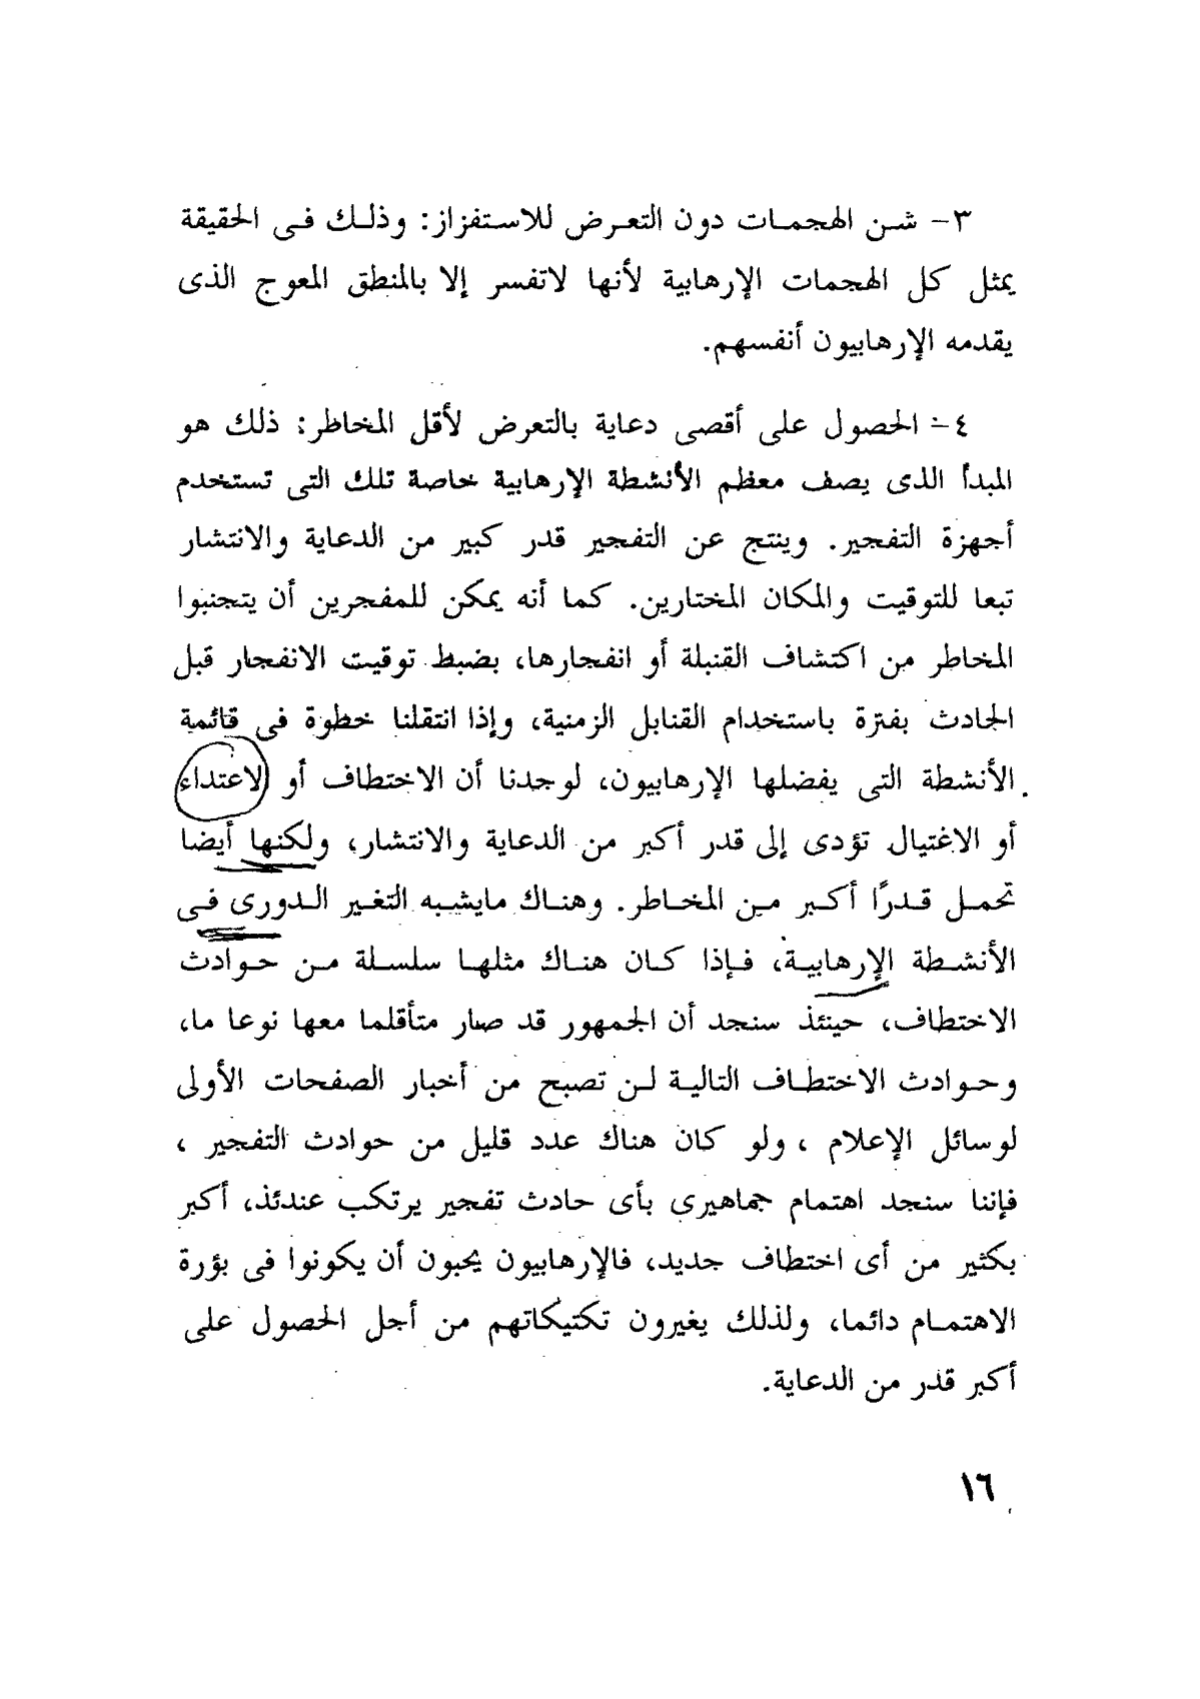 ٣- شن الهجمات دون التعرض للاستفزاز: وذلك فى الحقيقة
يمثل كل الهجمات الإرهابية لأنها لاتفسر إلا بالمنطق المعوج الذى
يقدمه الإرهابيون أنفسهم.
٤- الحصول على أقصى دعاية بالتعرض لأقل المخاطر: ذلك هو
المبدأ الذى يصف معظم الأنشطة الإرهابية خاصة تلك التى تستخدم
أجهزة التفجير. وينتج عن التفجير قدر كبير من الدعاية والانتشار
تبعا للتوقيت والمكان المختارين. كما أنه يمكن للمفجرين أن يتجنبوا
المخاطر من اكتشاف القنبلة أو انفجارها، بضبط توقيت الانفجار قبل
الحادث بفترة باستخدام القنابل الزمنية، وإذا انتقلنا خطوة فى قائمة
الأنشطة التى يفضلها الإرهابيون، لوجدنا أن الاختطاف أو الاعتداء
أو الاغتيال تؤدى إلى قدر أكبر من الدعاية والانتشار، ولكنها أيضا
تحمل قدرًا أكبر من المخاطر. وهناك مايشبه التغير الدورى فى
الأنشطة الإرهابية، فإذا كان هناك مثلها سلسلة من حوادث
الاختطاف، حينئذ سنجد أن الجمهور قد صار متأقلما معها نوعا ما،
وحوادث الاختطاف التالية لن تصبح من أخبار الصفحات الأولى
لوسائل الإعلام ، ولو كان هناك عدد قليل من حوادث التفجير ،
فإننا سنجد اهتمام جماهيرى بأى حادث تفجير يرتكب عندئذ، أكبر
بكثير من أى اختطاف جديد، فالإرهابيون يحبون أن يكونوا فى بؤرة
الاهتمام دائما، ولذلك يغيرون تكتيكاتهم من أجل الحصول على
أكبر قدر من الدعاية.
١٦